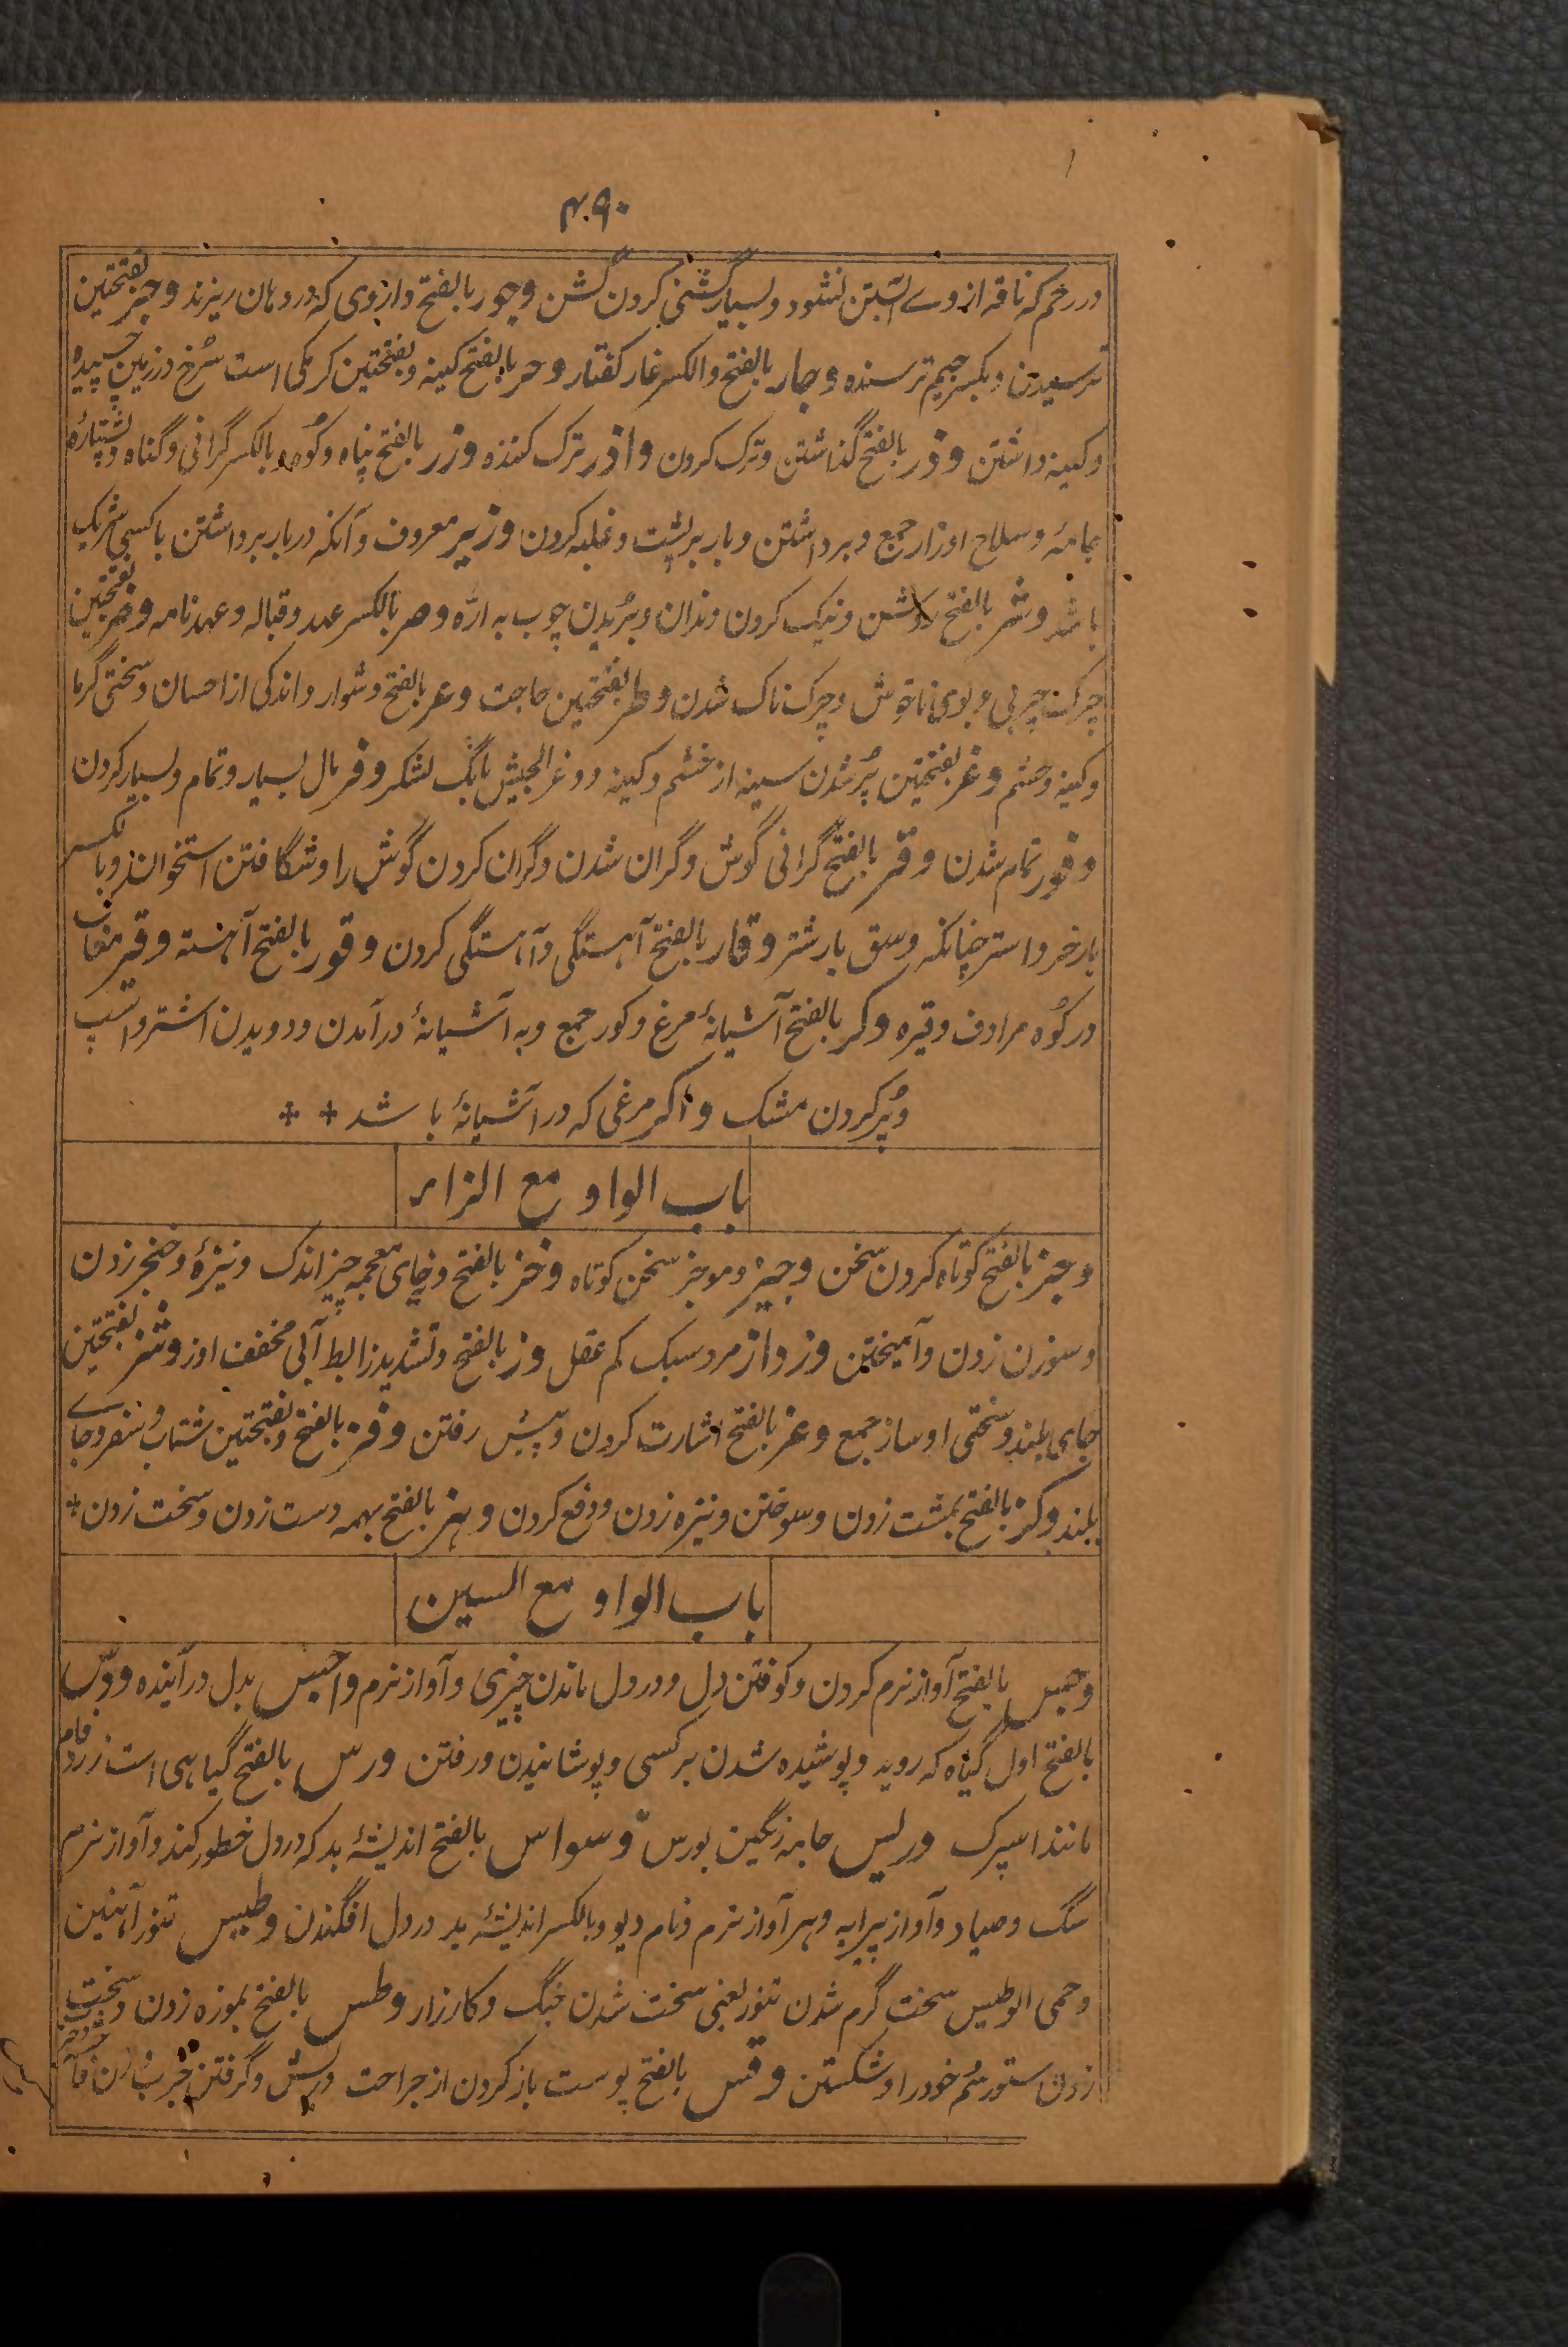 ۴۹۰
در رحم که ناقه از وے آبستن نشود و بسیار گشنی کردن گشن وجور بالفتح داروی که در دهان ریزند وجر بفتحتین
ترسیدن و بکسر جیم ترسنده وجار بالفتح والکسر غار کفتار وحر بالفتح کینه و بفتحتین کرمکی است سُرخ در زمین چسپیده
و کینه داشتن وذر بالفتح گذاشتن و ترک کردن واذر ترک کننده وزر بالفتح پناه و کُوه و بالکسر گرانی و گناه و پشتاره
جامهٔ و سلاح اوزار جمع و برداشتن و بار بر پشت و غلبه کردن وزیر معروف و آنکه در بار برداشتن با کسی شریک
باشد وشر بالفتح روشن و نیک کردن دندان و بُریدن چوب به ارّه وصر بالکسر عهد و قباله و عهدنامه وضر بفتحتین
چرک چربی و بوی ناخوش و چرک ناک شدن وطر بفتحتین حاجت وعر بالفتح دشوار و اندکی از احسان و سختی گرما
و کینه و خشم وغر بفتحتین پُر شدن سینه از خشم و کینه و وغر الجیش بانگ لشکر وفر مال بسیار و تمام و بسیار کردن
وفور تمام شدن وقر بالفتح گرانی گوش و گران شدن و گران کردن گوش را و شگافتن استخوان و بالکسر
بار خر و استر چنانکه وسق بار شتر وقار بالفتح آهستگی و آهستگی کردن وقور بالفتح آهسته وقیر مغاک
در کُوه مرادف وقیره وکر بالفتح آشیانهٔ مرغ وکور جمع و به آشیانهٔ درآمدن و دویدن اشتر و اسپ
و پُر کردن مشک واکر مرغی که در آشیانهٔ باشد ⁜ ⁜
باب الواو مع الزاء
وجز بالفتح کوتاه کردن سخن وجیز و موجز سخن کوتاه وخز بالفتح و خای معجمه چیز اندک و نیزهٔ و خنجر زدن
و سوزن زدن و آمیختن وزواز مرد سبک کم عقل وز بالفتح و تشدید زا بط آبی مخفف اوز وشز بفتحتین
جای بلند و سختی اوشاز جمع وغز بالفتح اشارت کردن و پیش رفتن وفز بالفتح و بفتحتین شتاب و سفر و جاے
بلند وکز بالفتح بمشت زدن و سوختن و نیزه زدن و دفع کردن وهز بالفتح بهمه دست زدن و سخت زدن ⁜
باب الواو مع السین
وجس بالفتح آواز نرم کردن و کوفتن دل و در دل ماندن چیزی و آواز نرم واجس بدل درآینده ودس
بالفتح اول گیاه که روید و پوشیده شدن بر کسی و پوشانیدن و رفتن ورس بالفتح گیاهی است زرد فام
مانند اسپرک وریس جامه رنگین بورس وسواس بالفتح اندیشهٔ بد که در دل خطور کند و آواز نرم
سگ و صیاد و آواز پیرایه و هر آواز نرم و نام دیو و بالکسر اندیشهٔ بد در دل افگندن وطیس تنور آهنین
و حمی الوطیس سخت گرم شدن تنور یعنی سخت شدن جنگ و کارزار وطس بالفتح بموزه زدن و سخت
زدن ستور سُم خود را و شکستن وقس بالفتح پوست باز کردن از جراحت و ریش و گرفتن